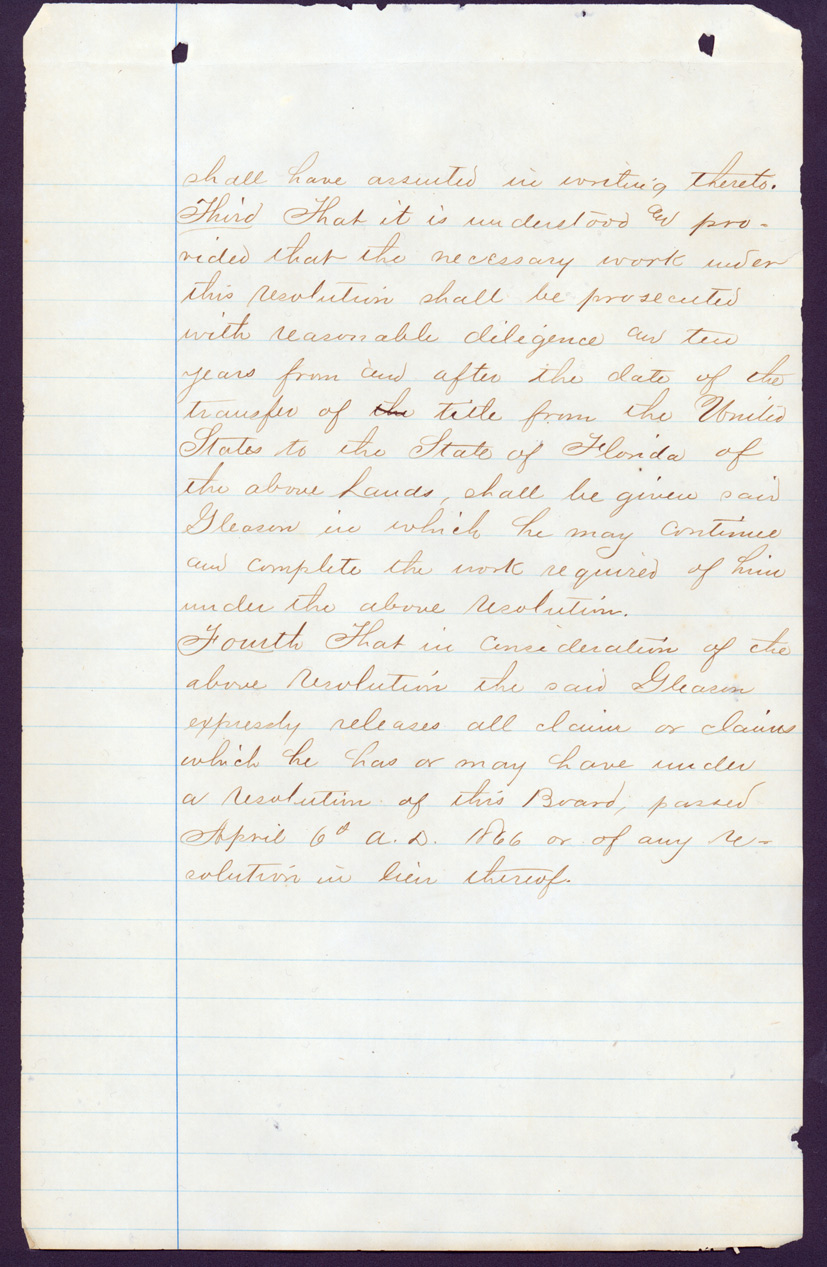 shall have assented in writing thereto.
Third That it is understood and pro-
vided that the necessary work under
this resolution shall be prosecuted
with reasonable diligence and ten
years from and after the date of the
transfer of the title from the United
States to the State of Florida of
the above lands, shall be given said
Gleason in which he may continue
and complete the work required of him
under the above resolution.
Fourth That in consideration of the
above resolution the said Gleason
expressly releases all claim or claims
which he has or may have under
a resolution of this Board, passed
April 6th A.D. 1866 or of any re-
solution in lieu thereof.